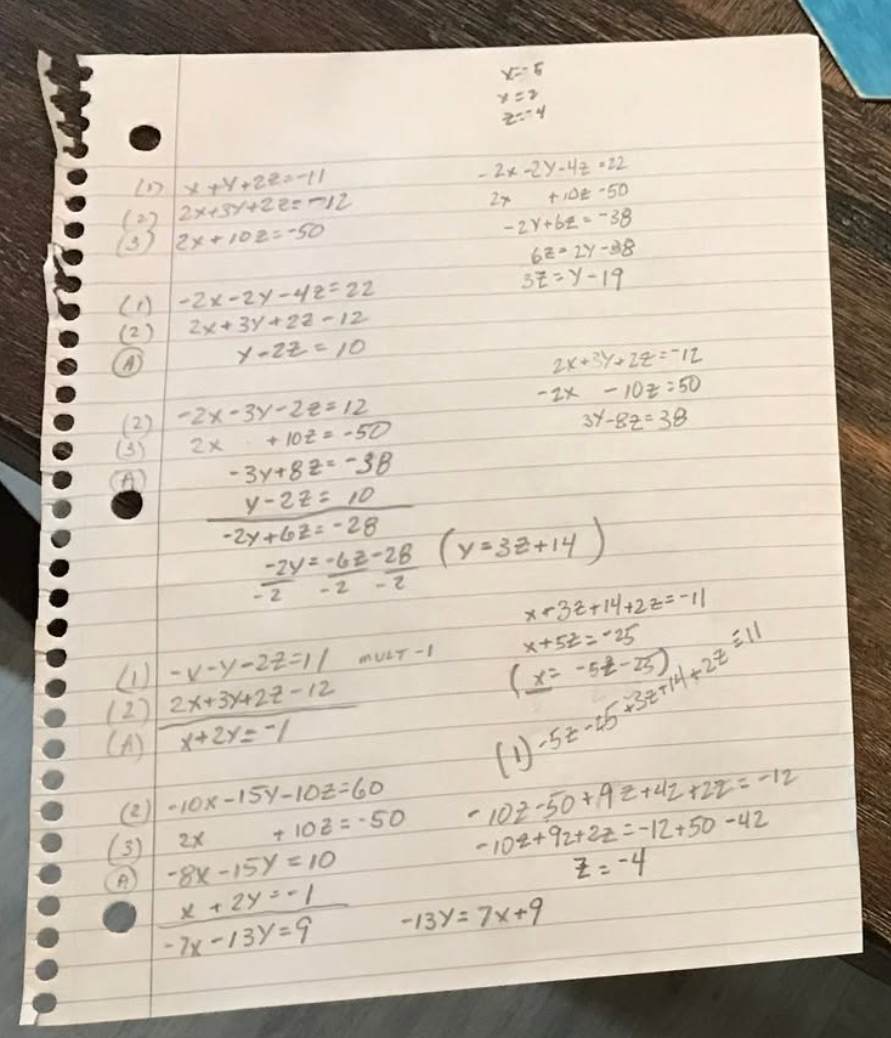 x=-5
y=2
z=-4
(1) x+y+2z=-11
(2) 2x+3y+2z=-12
(3) 2x+10z=-50
(1) -2x-2y-4z=22
(2) 2x+3y+2z-12
(A) y-2z=10
(2) -2x-3y-2z=12
(3) 2x +10z=-50
(A) -3y+8z=-38
y-2z=10
-2y+6z=-28
-2y=-6z-28 (y=3z+14)
-2 -2 -2
(1) -x-y-2z=11 MULT -1
(2) 2x+3y+2z-12
(A) x+2y=-1
(2) -10x-15y-10z=60
(3) 2x +10z=-50
(A) -8x-15y=10
x+2y=-1
-7x-13y=9
-2x-2y-4z=22
2x +10z-50
-2y+6z=-38
6z=2y-38
3z=y-19
2x+3y+2z=-12
-2x -10z=50
3y-8z=38
x+3z+14+2z=-11
x+5z=-25
(x=-5z-25)
(1) -5z-25+3z+14+2z=11
-10z-50+9z+42+2z=-12
-10z+9z+2z=-12+50-42
z=-4
-13y=7x+9